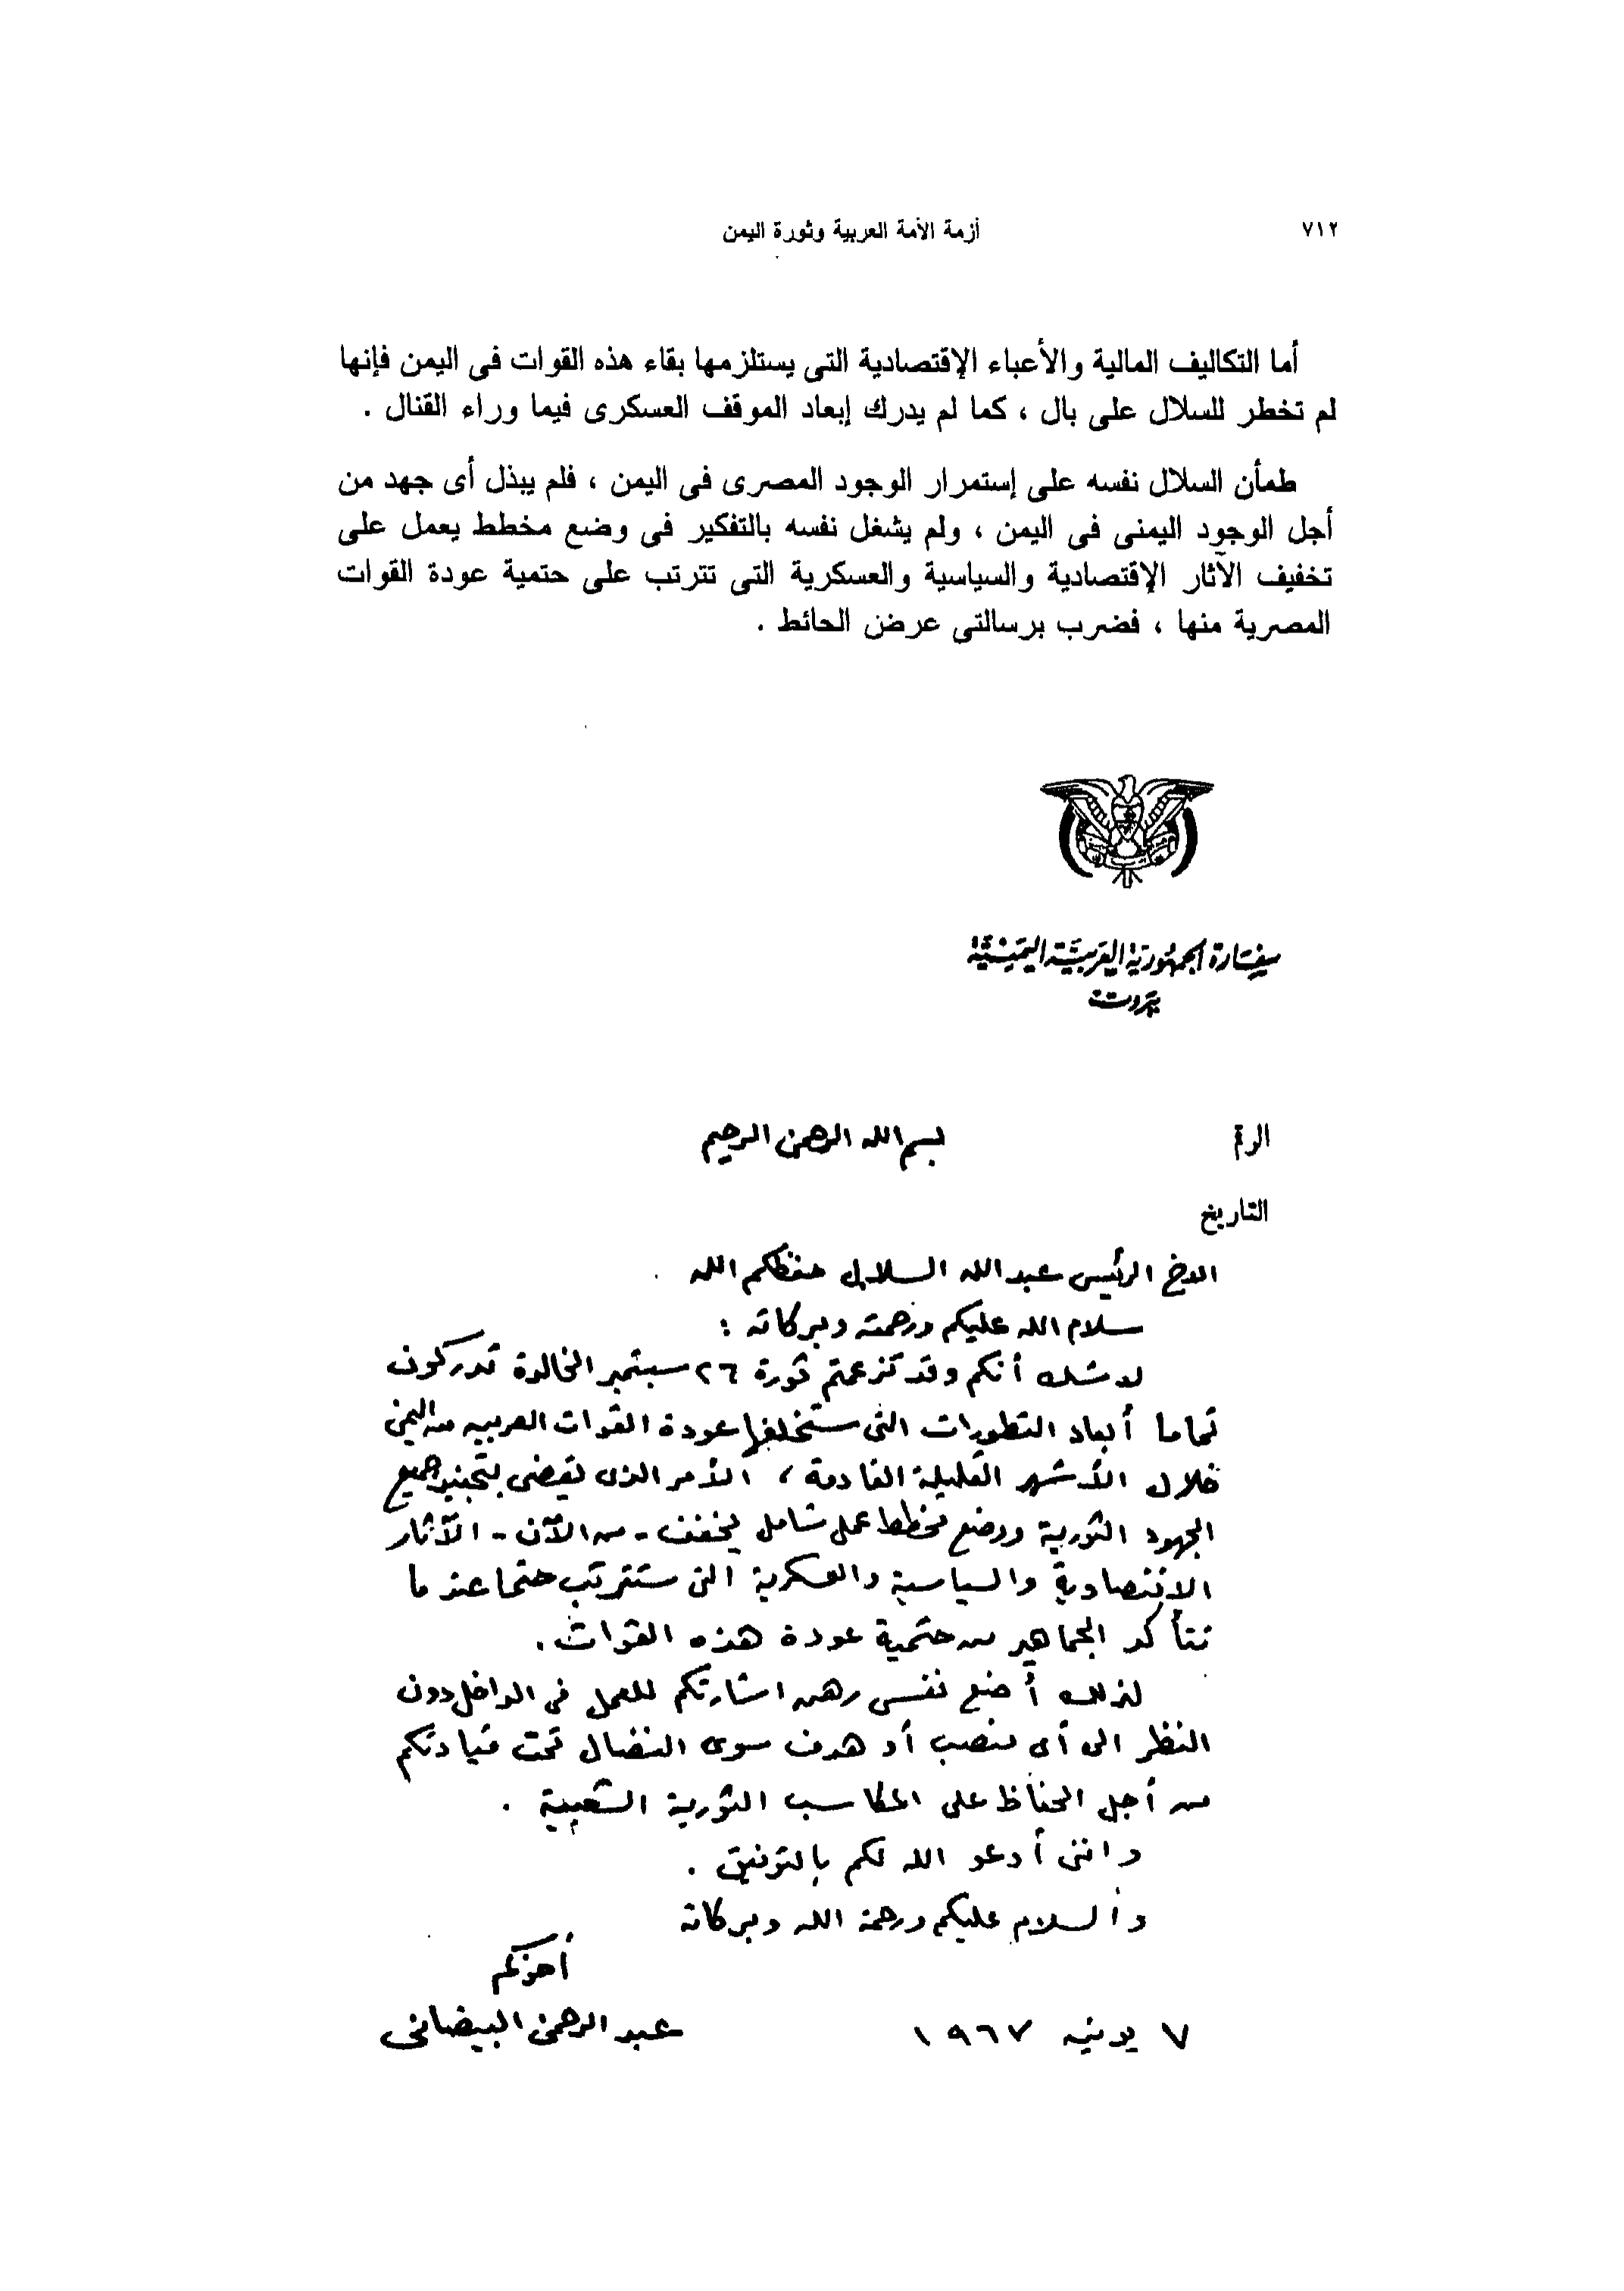 ٧١٢
أزمة الأمة العربية وثورة اليمن
أما التكاليف المالية والأعباء الإقتصادية التى يستلزمها بقاء هذه القوات فى اليمن فإنها
لم تخطر للسلال على بال ، كما لم يدرك إبعاد الموقف العسكرى فيما وراء القنال .
طمأن السلال نفسه على إستمرار الوجود المصرى فى اليمن ، فلم يبذل أى جهد من
أجل الوجود اليمنى فى اليمن ، ولم يشغل نفسه بالتفكير فى وضع مخطط يعمل على
تخفيف الآثار الإقتصادية والسياسية والعسكرية التى تترتب على حتمية عودة القوات
المصرية منها ، فضرب برسالتى عرض الحائط .
سفارة الجمهورية العربية اليمنية
بيروت
الرقم
بسم الله الرحمن الرحيم
التاريخ
الاخ الرئيس عبد الله السلال حفظكم الله
سلام الله عليكم ورحمته وبركاته :
لا شك أنكم وقد تزعمتم ثورة ٢٦ سبتمبر الخالدة تدركون
تماما أبعاد التطورات التى ستخلفها عودة القوات العربيه من اليمن
خلال الأشهر القليلة القادمة ، الأمر الذى يقضى بتجنيد جميع
الجهود الثورية ووضع مخطط عمل شامل يخفف - من الآن - الآثار
الاقتصادية والسياسية والعسكرية التى ستترتب حتما عند ما
تتأكد الجماهير من حتمية عودة هذه القوات .
لذلك أضع نفسى رهن اشارتكم للعمل فى الداخل دون
النظر الى أى منصب أو هدف سوى النضال تحت قيادتكم
من أجل الحفاظ على المكاسب الثورية الشعبية .
واننى أدعو الله لكم بالتوفيق .
والسلام عليكم ورحمة الله وبركاته
أخوكم
عبد الرحمن البيضانى
٧ يونيه ١٩٦٧